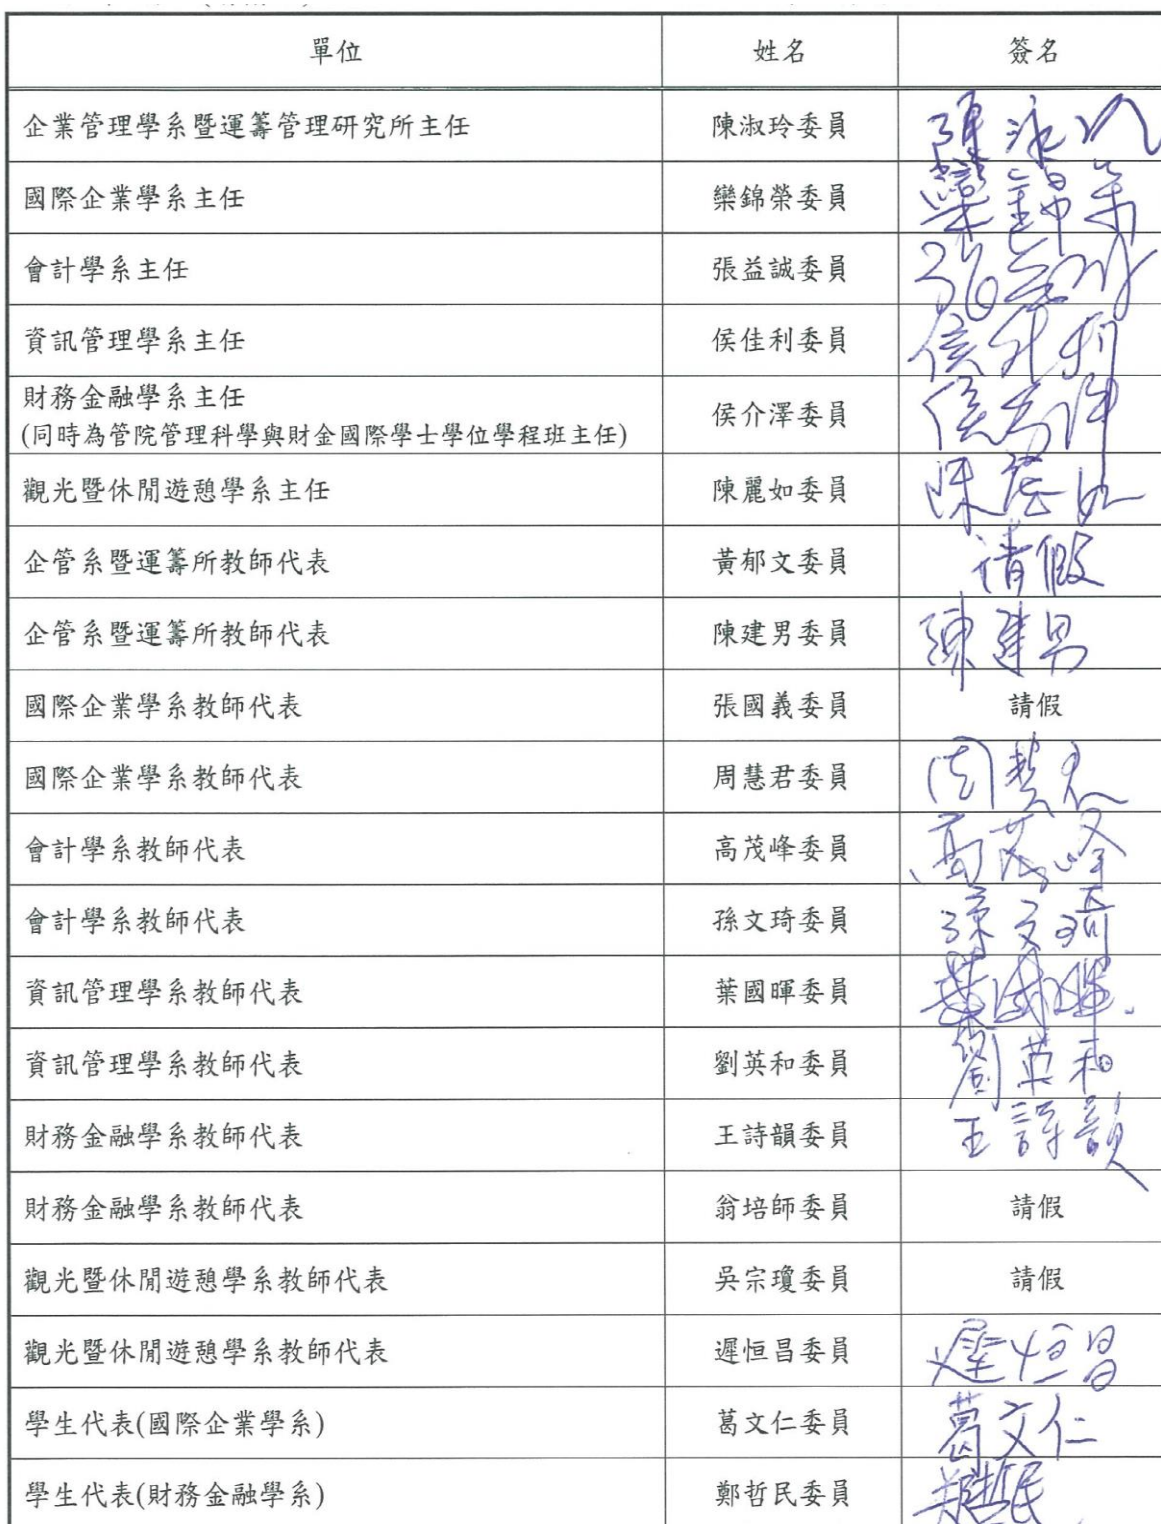 單位 姓名 簽名
企業管理學系暨運籌管理研究所主任 陳淑玲委員
國際企業學系主任 欒錦榮委員 欒錦榮
會計學系主任 張益誠委員
資訊管理學系主任 侯佳利委員 侯佳利
財務金融學系主任 侯介澤委員 侯介澤
(同時為管院管理科學與財金國際學士學位學程班主任)
觀光暨休閒遊憩學系主任 陳麗如委員 陳麗如
企管系暨運籌所教師代表 黃郁文委員 請假
企管系暨運籌所教師代表 陳建男委員 陳建男
國際企業學系教師代表 張國義委員 請假
國際企業學系教師代表 周慧君委員 周慧君
會計學系教師代表 高茂峰委員 高茂峰
會計學系教師代表 孫文琦委員 孫文琦
資訊管理學系教師代表 葉國暉委員 葉國暉
資訊管理學系教師代表 劉英和委員 劉英和
財務金融學系教師代表 王詩韻委員 王詩韻
財務金融學系教師代表 翁培師委員 請假
觀光暨休閒遊憩學系教師代表 吳宗瓊委員 請假
觀光暨休閒遊憩學系教師代表 遲恒昌委員 遲恒昌
學生代表(國際企業學系) 葛文仁委員 葛文仁
學生代表(財務金融學系) 鄭哲民委員 鄭哲民